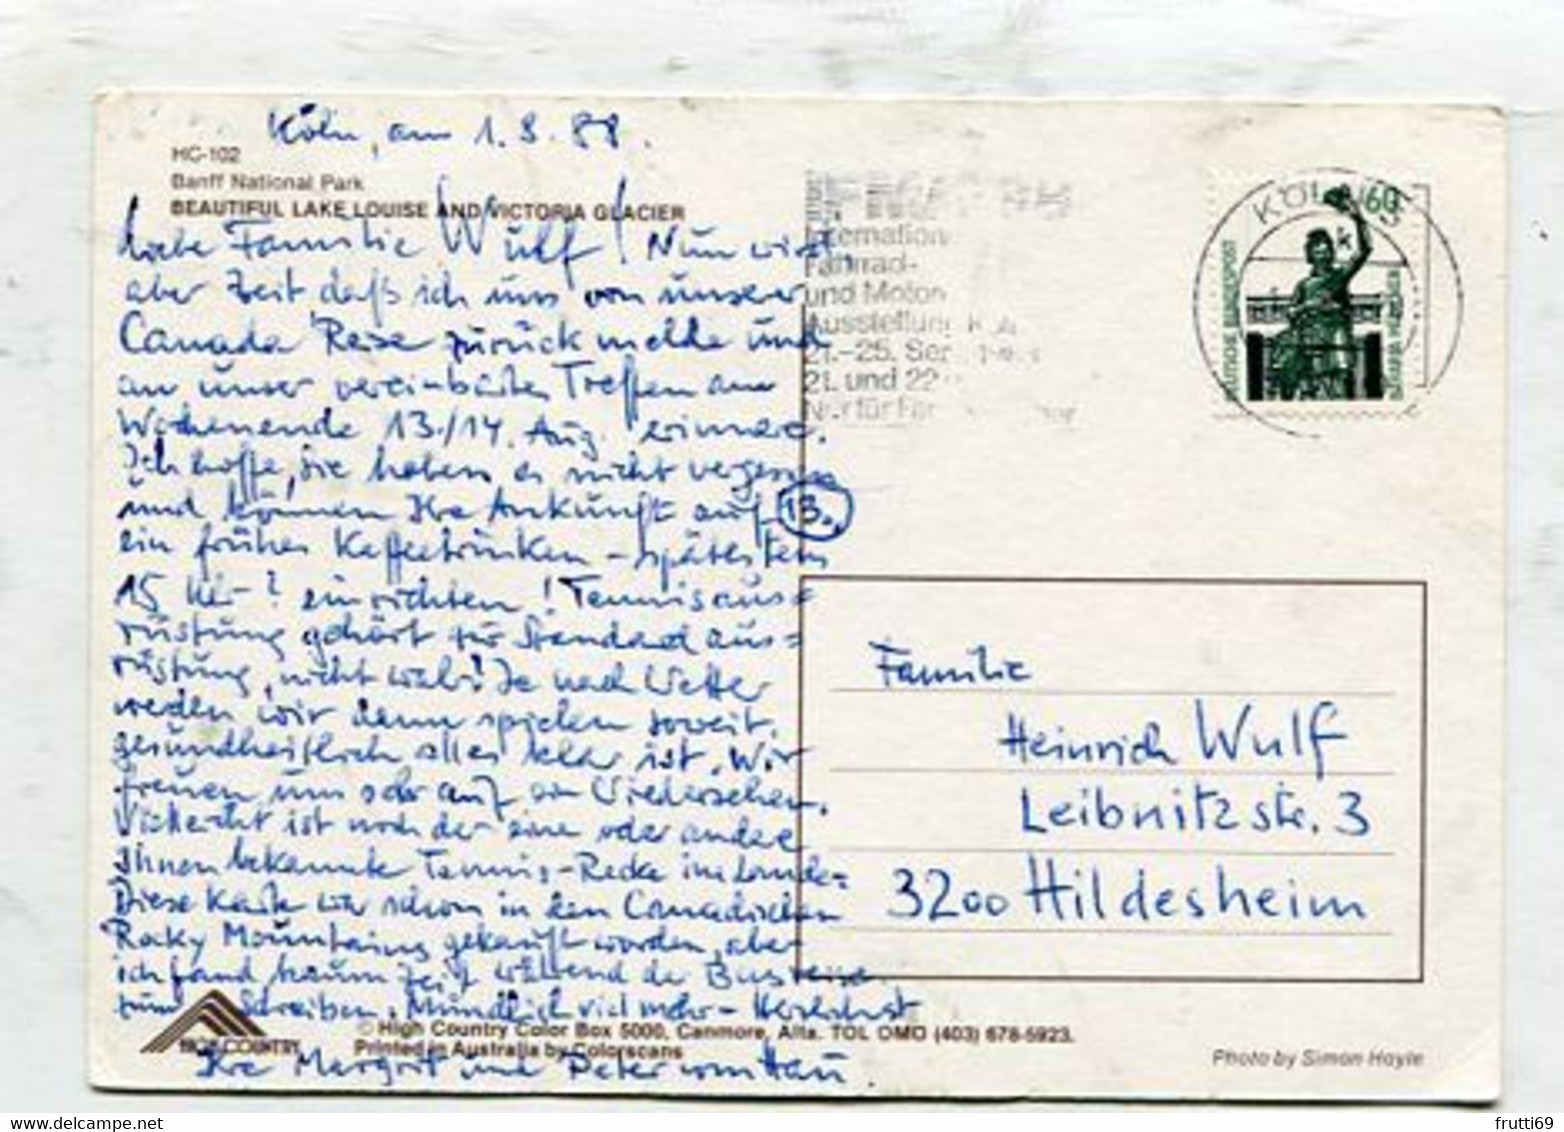 Köln, am 1.8.88.
HC-102
Banff National Park
BEAUTIFUL LAKE LOUISE AND VICTORIA GLACIER
Liebe Familie Wulf! Nun wird
aber Zeit daß ich uns von unserer
Canada Reise zurück melde und
an unser vereinbartes Treffen am
Wochenende 13./14. Aug. erinnere.
Ich hoffe, Sie haben es nicht vergessen
und können Ihre Ankunft auf 13.
ein frühes Kaffeetrinken - spätestens
15 Uhr? einrichten! Tennisaus=
rüstung gehört zur Standardaus=
rüstung, nicht wahr? Je nach Wetter
werden wir denn spielen soweit
gesundheitlich alles klar ist. Wir
freuen uns sehr auf ein Wiedersehen.
Vielleicht ist noch der eine oder andere
Ihnen bekannte Tennis-Recke im Lande=
Diese Karte war schon in den Canadischen
Rocky Mountains gekauft worden, aber
ich fand kaum Zeit während der Busreise
zum Schreiben. Mündlich viel mehr - Herzlichst
Ihre Margrit und Peter
HIGH COUNTRY
© High Country Color Box 5000, Canmore, Alta. TOL OMO (403) 678-5923.
Printed in Australia by Colorscans
Internation
Fahrrad-
und Motor
Ausstellung
21.-25. Sep
21. und 22
Nur für
KÖLN
60
DEUTSCHE BUNDESPOST
BAVARIA MÜNCHEN
Familie
Heinrich Wulf
Leibnitzstr. 3
3200 Hildesheim
Photo by Simon Hoyle
frutti69